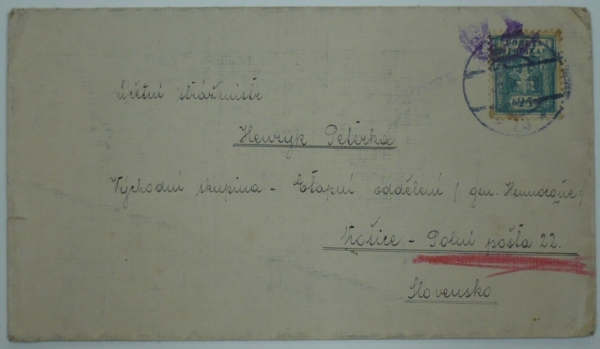 Účetní strážmistr
Henryk Peterka
Východní skupina - Etapní oddělení / gen. Hennocque /
Košice - Polní pošta 22.
Slovensko
25